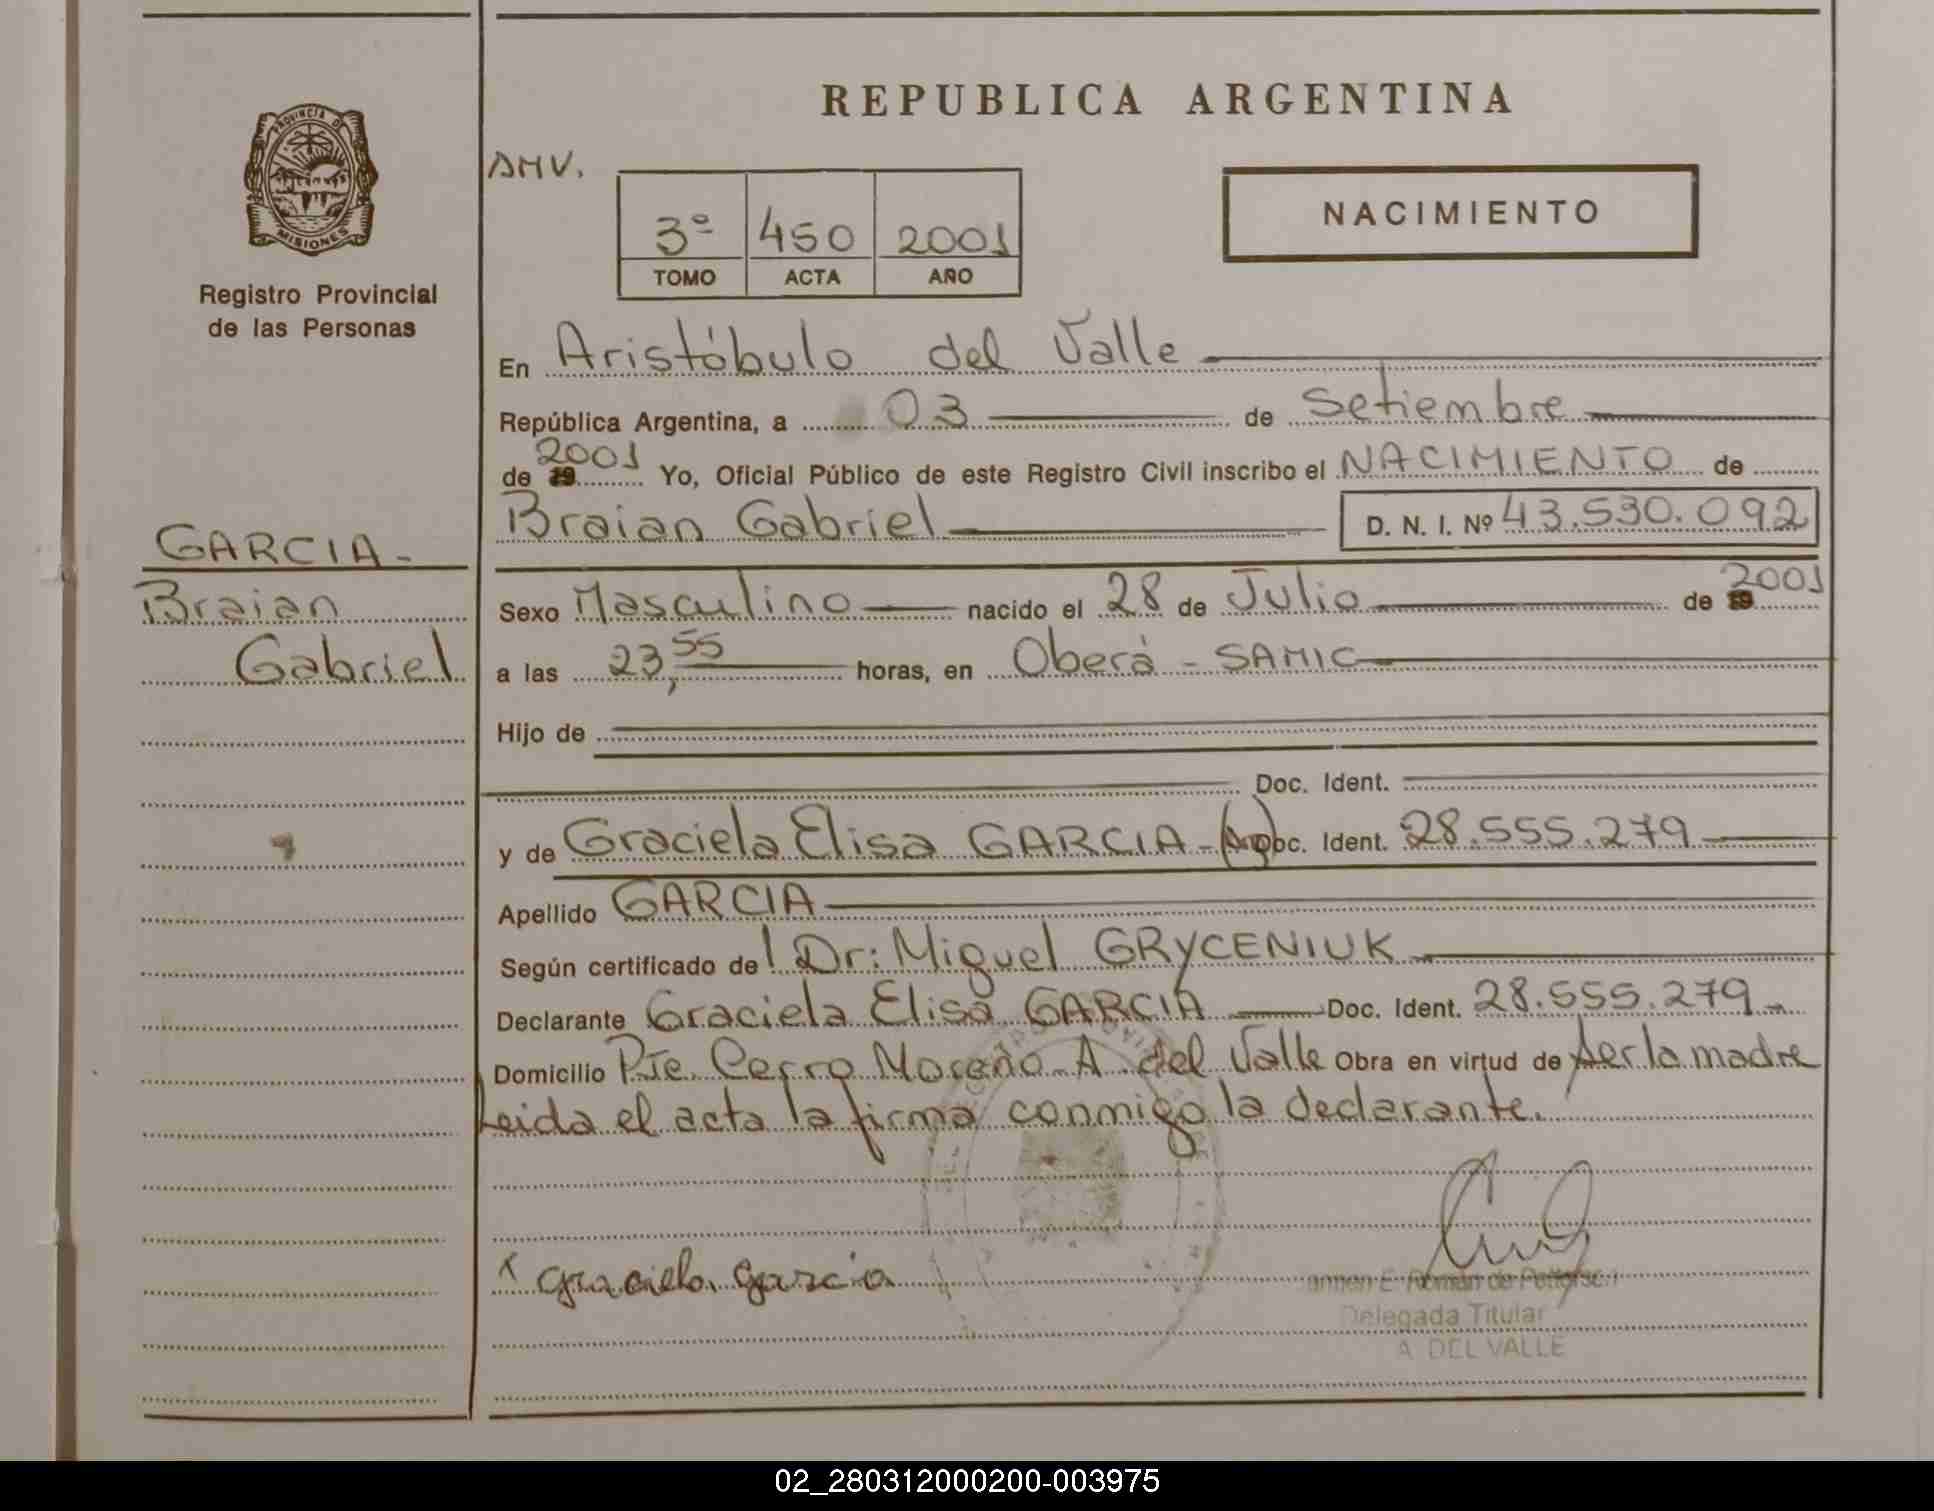 REPUBLICA ARGENTINA
PROVINCIA DE
MISIONES
Registro Provincial
de las Personas
AMV.
3º 450 2001
TOMO ACTA AÑO
NACIMIENTO
En Aristóbulo del Valle
República Argentina, a 03 de Setiembre
de 2001 Yo, Oficial Público de este Registro Civil inscribo el NACIMIENTO de
Braian Gabriel D. N. I. Nº 43.530.092
GARCIA-
Braian
Gabriel
Sexo Masculino nacido el 28 de Julio de 2001
a las 23,55 horas, en Oberá - SAMIC
Hijo de
Doc. Ident.
y de Graciela Elisa GARCIA- Doc. Ident. 28.555.279
Apellido GARCIA
Según certificado del Dr: Miguel GRYCENIUK
Declarante Graciela Elisa GARCIA Doc. Ident. 28.555.279-
Domicilio Pje. Cerro Moreno A. del Valle Obra en virtud de ser la madre
Leida el acta la firma conmigo la declarante.
x graciela garcia
E. Román de
Delegada Titular
A. DEL VALLE
02_280312000200-003975